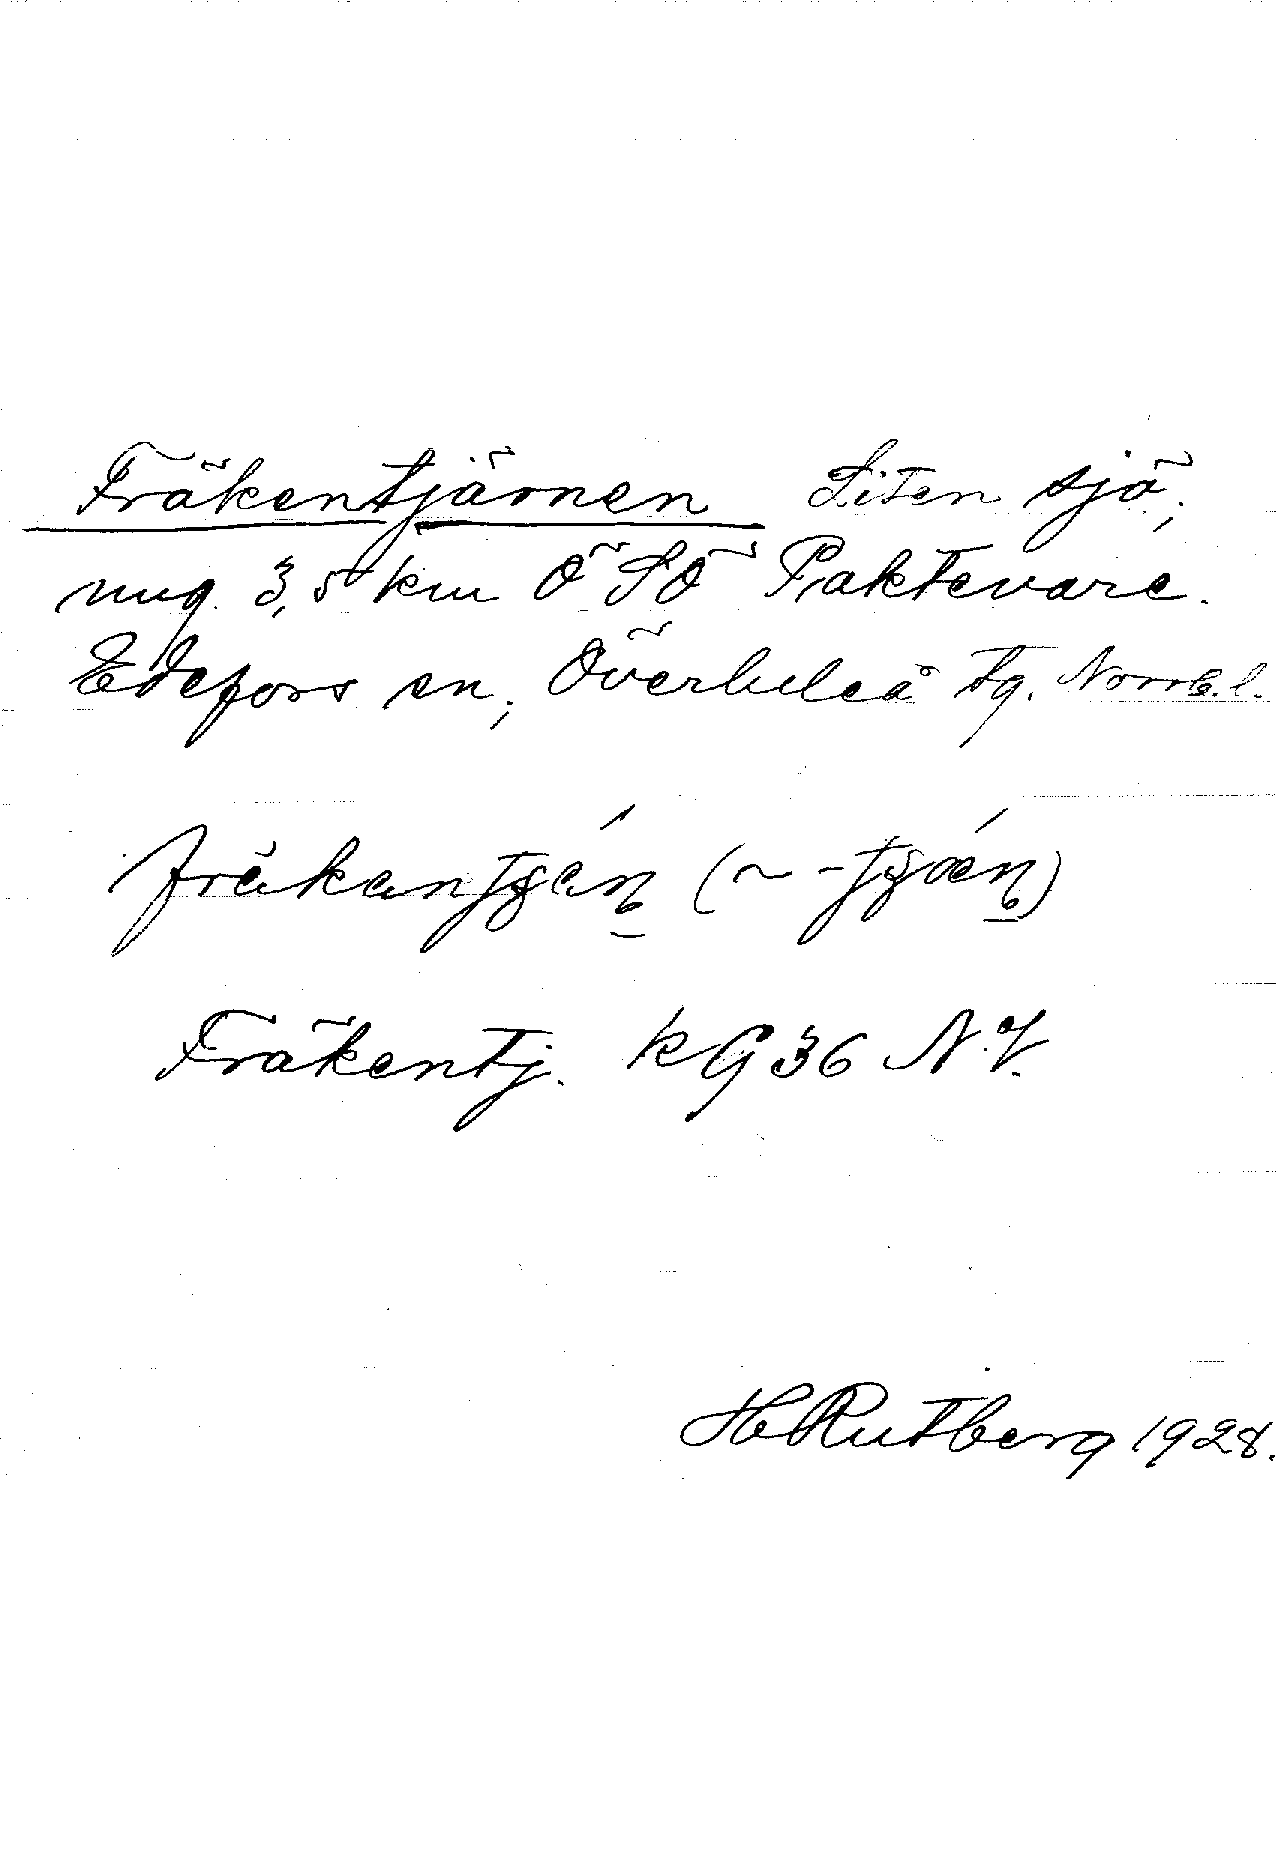 Fräkentjärnen Liten sjö;
ung. 3,5 km ÖSÖ Paktevare.
Edefors sn, Överluleå tg. Norrb. l.
Fräkentj. kG 36 N.V.
H Rutberg 1928.